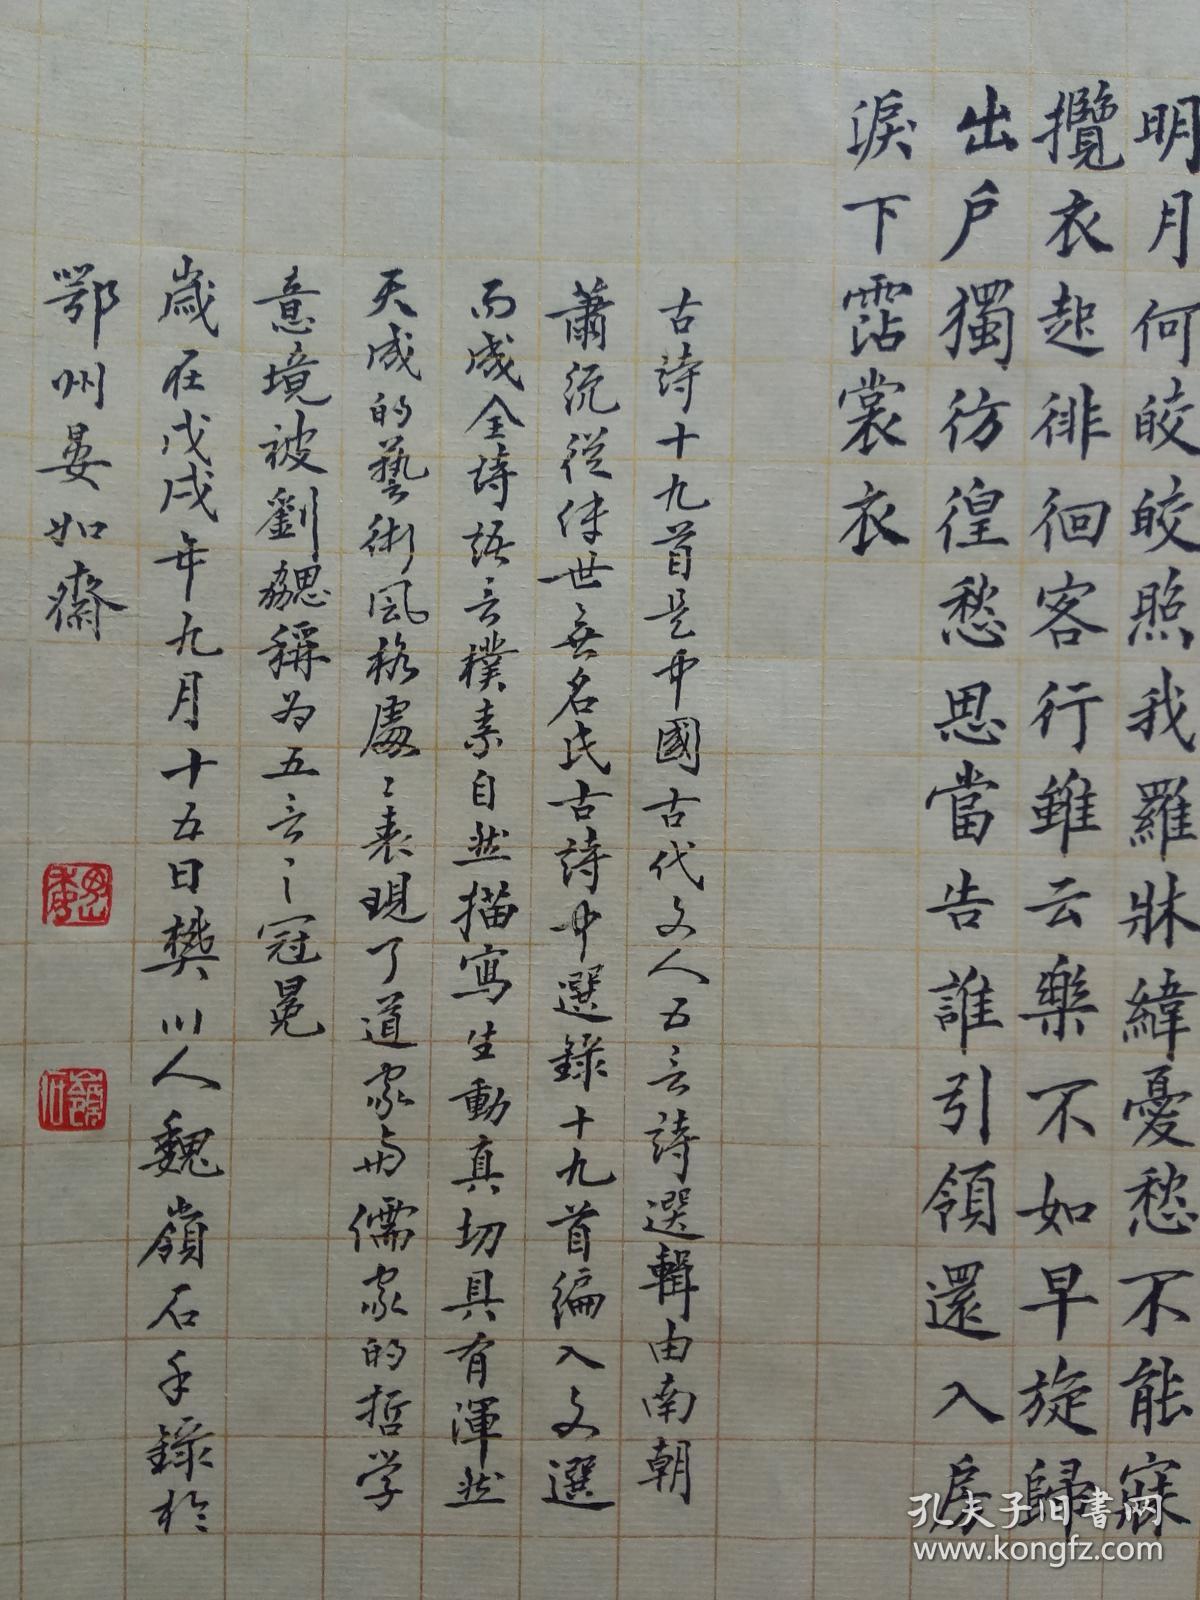 明月何皎皎照我羅牀緯憂愁不能寐
攬衣起徘徊客行雖云樂不如早旋歸
出戶獨彷徨愁思當告誰引領還入房
淚下霑裳衣
古詩十九首是中國古代文人五言詩選輯由南朝
蕭統從傳世無名氏古詩中選錄十九首編入文選
而成全詩語言樸素自然描寫生動真切具有渾然
天成的藝術風格處〻表現了道家与儒家的哲学
意境被劉勰稱为五言之冠冕
歲在戊戌年九月十五日樊川人魏嶺石手錄於
鄂州晏如齋
孔夫子旧书网
www.kongfz.com